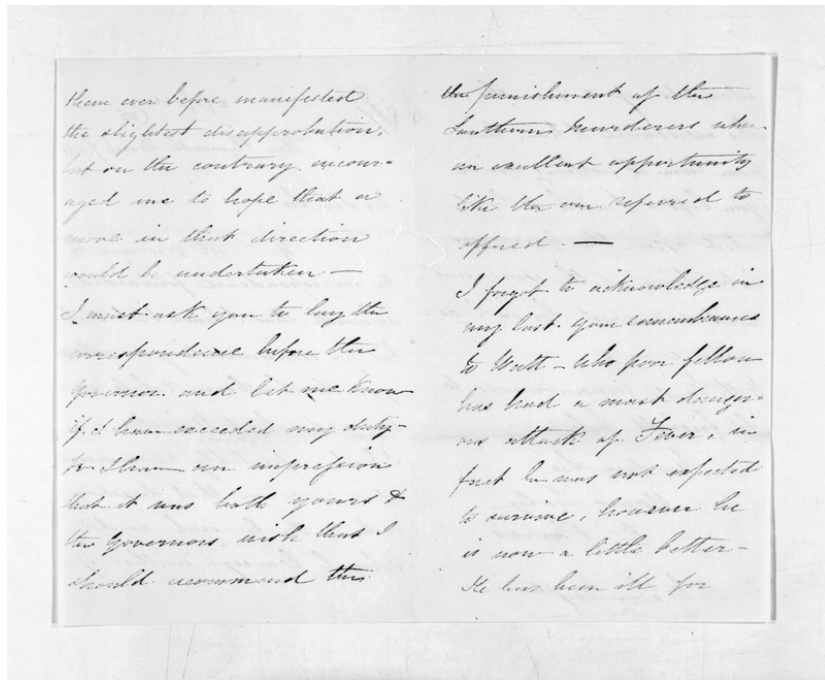 them ever before manifested
the slightest disapprobation,
but on the contrary encour-
aged me to hope that a
move in that direction
would be undertaken —
I must ask you to lay the
correspondence before the
Governor and let me know
if I have exceeded my duty —
I have an impression
that it was both yours &
the Governors wish that I
should recommend this
the punishment of the
murderers when
an excellent opportunity
like the one referred to
offered. —
I forgot to acknowledge in
my last your remembrances
to Watt – who poor fellow
has had a most danger-
ous attack of Fever, in
fact he was not expected
to survive, however he
is now a little better –
He has been ill for